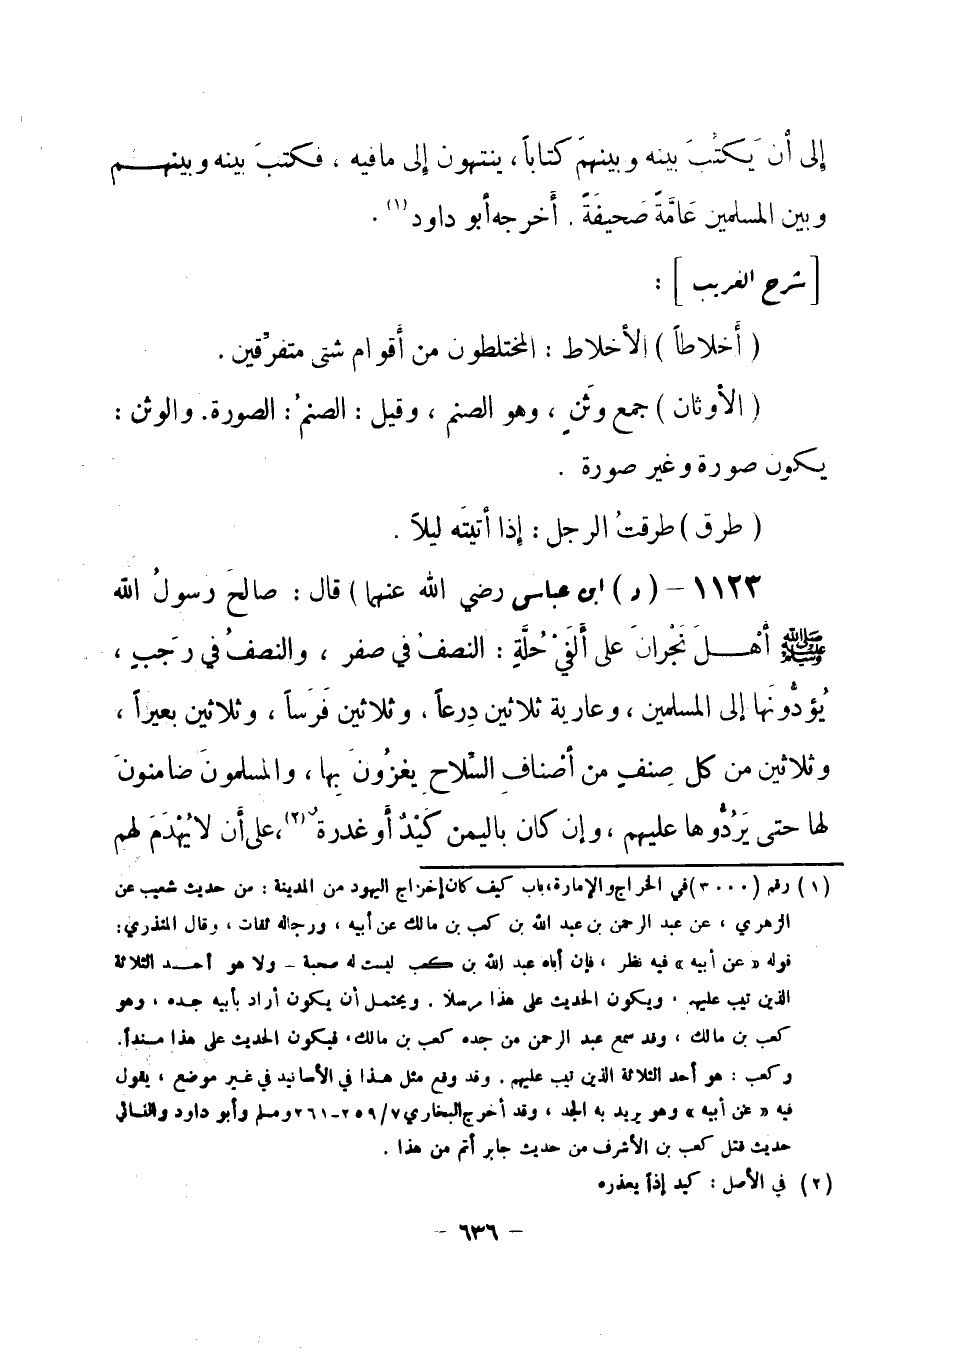 إلى أن يَكتُبَ بينه وبينهمَ كتاباً، ينتهون إلى مافيه ، فكتبَ بينه وبينهـم
وبين المسلمين عَامَّةً صَحيفَةً . أخرجه أبو داود(١) .
[شرح الغريب ] :
( أخلاطاً ) الأخلاط : المختلطون من أقوام شتى متفرّقين .
( الأوثان ) جمع وثَنٍ ، وهو الصنم ، وقيل : الصنمُ : الصورة. والوثن :
يكون صورة وغير صورة .
( طرق ) طرقتُ الرجل : إذا أتيتَه ليلاً .
١١٢٣ - ( د ) ابن عباسى رضي الله عنهما ) قال : صالحَ رسولُ الله
ﷺ أهـلَ نَجْرانَ على ألفَيْ حُلَّةٍ : النصفُ في صفر ، والنصفُ في رَجبٍ ،
يُؤدُّونَها إلى المسلمين ، وعارية ثلاثين دِرعاً ، وثلاثين فَرَساً ، وثلاثين بعيراً ،
وثلاثين من كل صِنفٍ من أصْنافِ السِّلاحِ يغزُونَ بِها ، والمسلمونَ ضامنونَ
لها حتى يَرُدُّوها عليهم ، وإن كان باليمن كَيْدٌ أو غدرة(٢)، على أن لا يُهْدَمَ لهم
(١) رقم (٣٠٠٠) في الخراج والإمارة، باب كيف كان إخراج اليهود من المدينة : من حديث شعيب عن
الزهري ، عن عبد الرحمن بن عبد الله بن كعب بن مالك عن أبيه ، ورجاله ثقات ، وقال المنذري:
قوله « عن أبيه » فيه نظر ، فإن أباه عبد الله بن كعب ليست له صحبة - ولا هو أحـد الثلاثة
الذين تيب عليهم . ويكون الحديث على هذا مرسلا . ويحتمل أن يكون أراد بأبيه جده ، وهو
كعب بن مالك ، وقد سمع عبد الرحمن من جده كعب بن مالك، فيكون الحديث على هذا مسنداً.
وكعب : هو أحد الثلاثة الذين تيب عليهم . وقد وقع مثل هـذا في الأسانيد في غير موضع ، يقول
فيه « عن أبيه » وهو يريد به الجد ، وقد أخرج البخاري ٢٥٩/٧-٢٦١ ومسلم وأبو داود والنسائي
حديث قتل كعب بن الأشرف من حديث جابر أتم من هذا .
(٢) في الأصل : كيد إذاً يعذره
- ٦٣٦ -